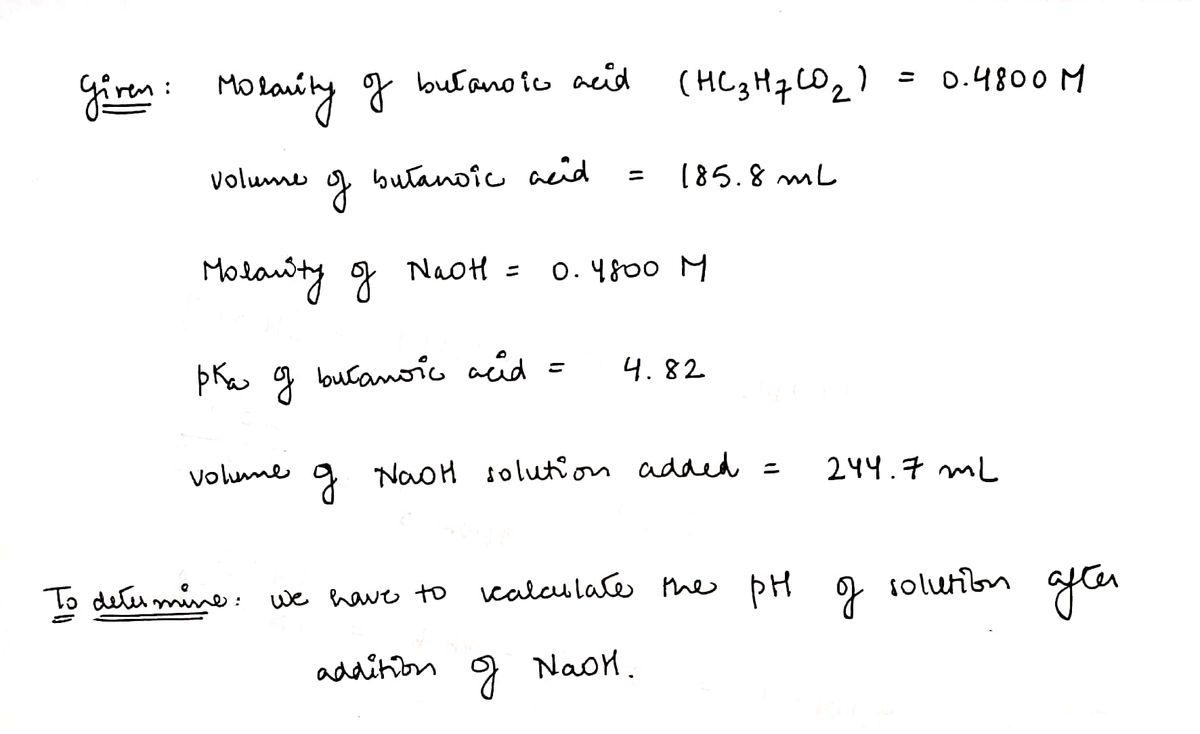 Given: Molarity of butanoic acid (HC3H7CO2) = 0.4800 M
volume of butanoic acid = 185.8 mL
Molarity of NaOH = 0.4800 M
pKa of butanoic acid = 4.82
volume of NaOH solution added = 244.7 mL
To determine: we have to calculate the pH of solution after
addition of NaOH.